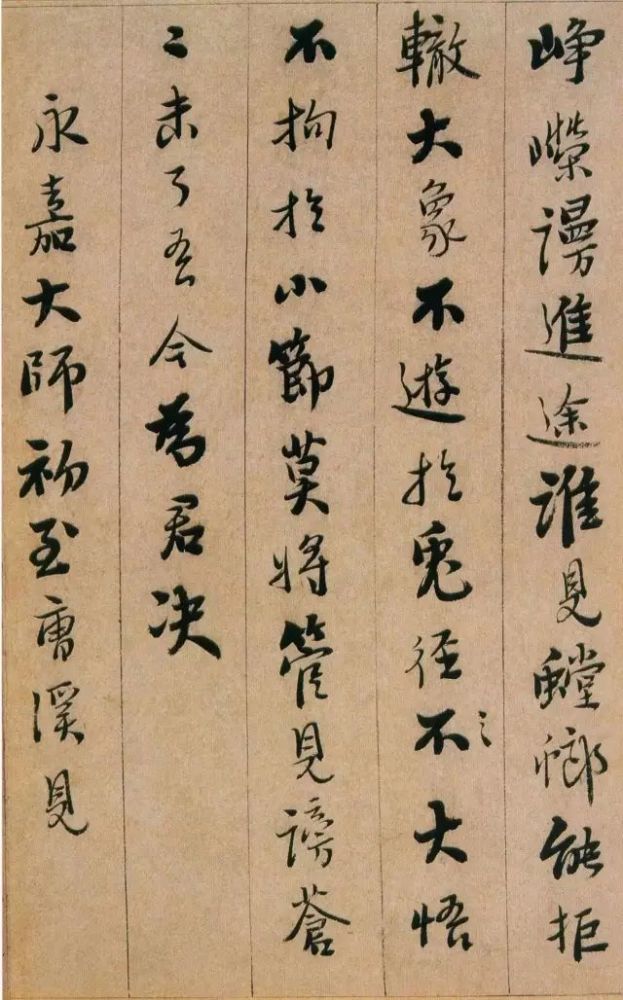 崢嶸謾進途誰見螳螂能拒
轍大象不遊於兔徑不〻大悟
不拘於小節莫將管見謗蒼
〻未了吾今為君决
永嘉大師初至曹溪見